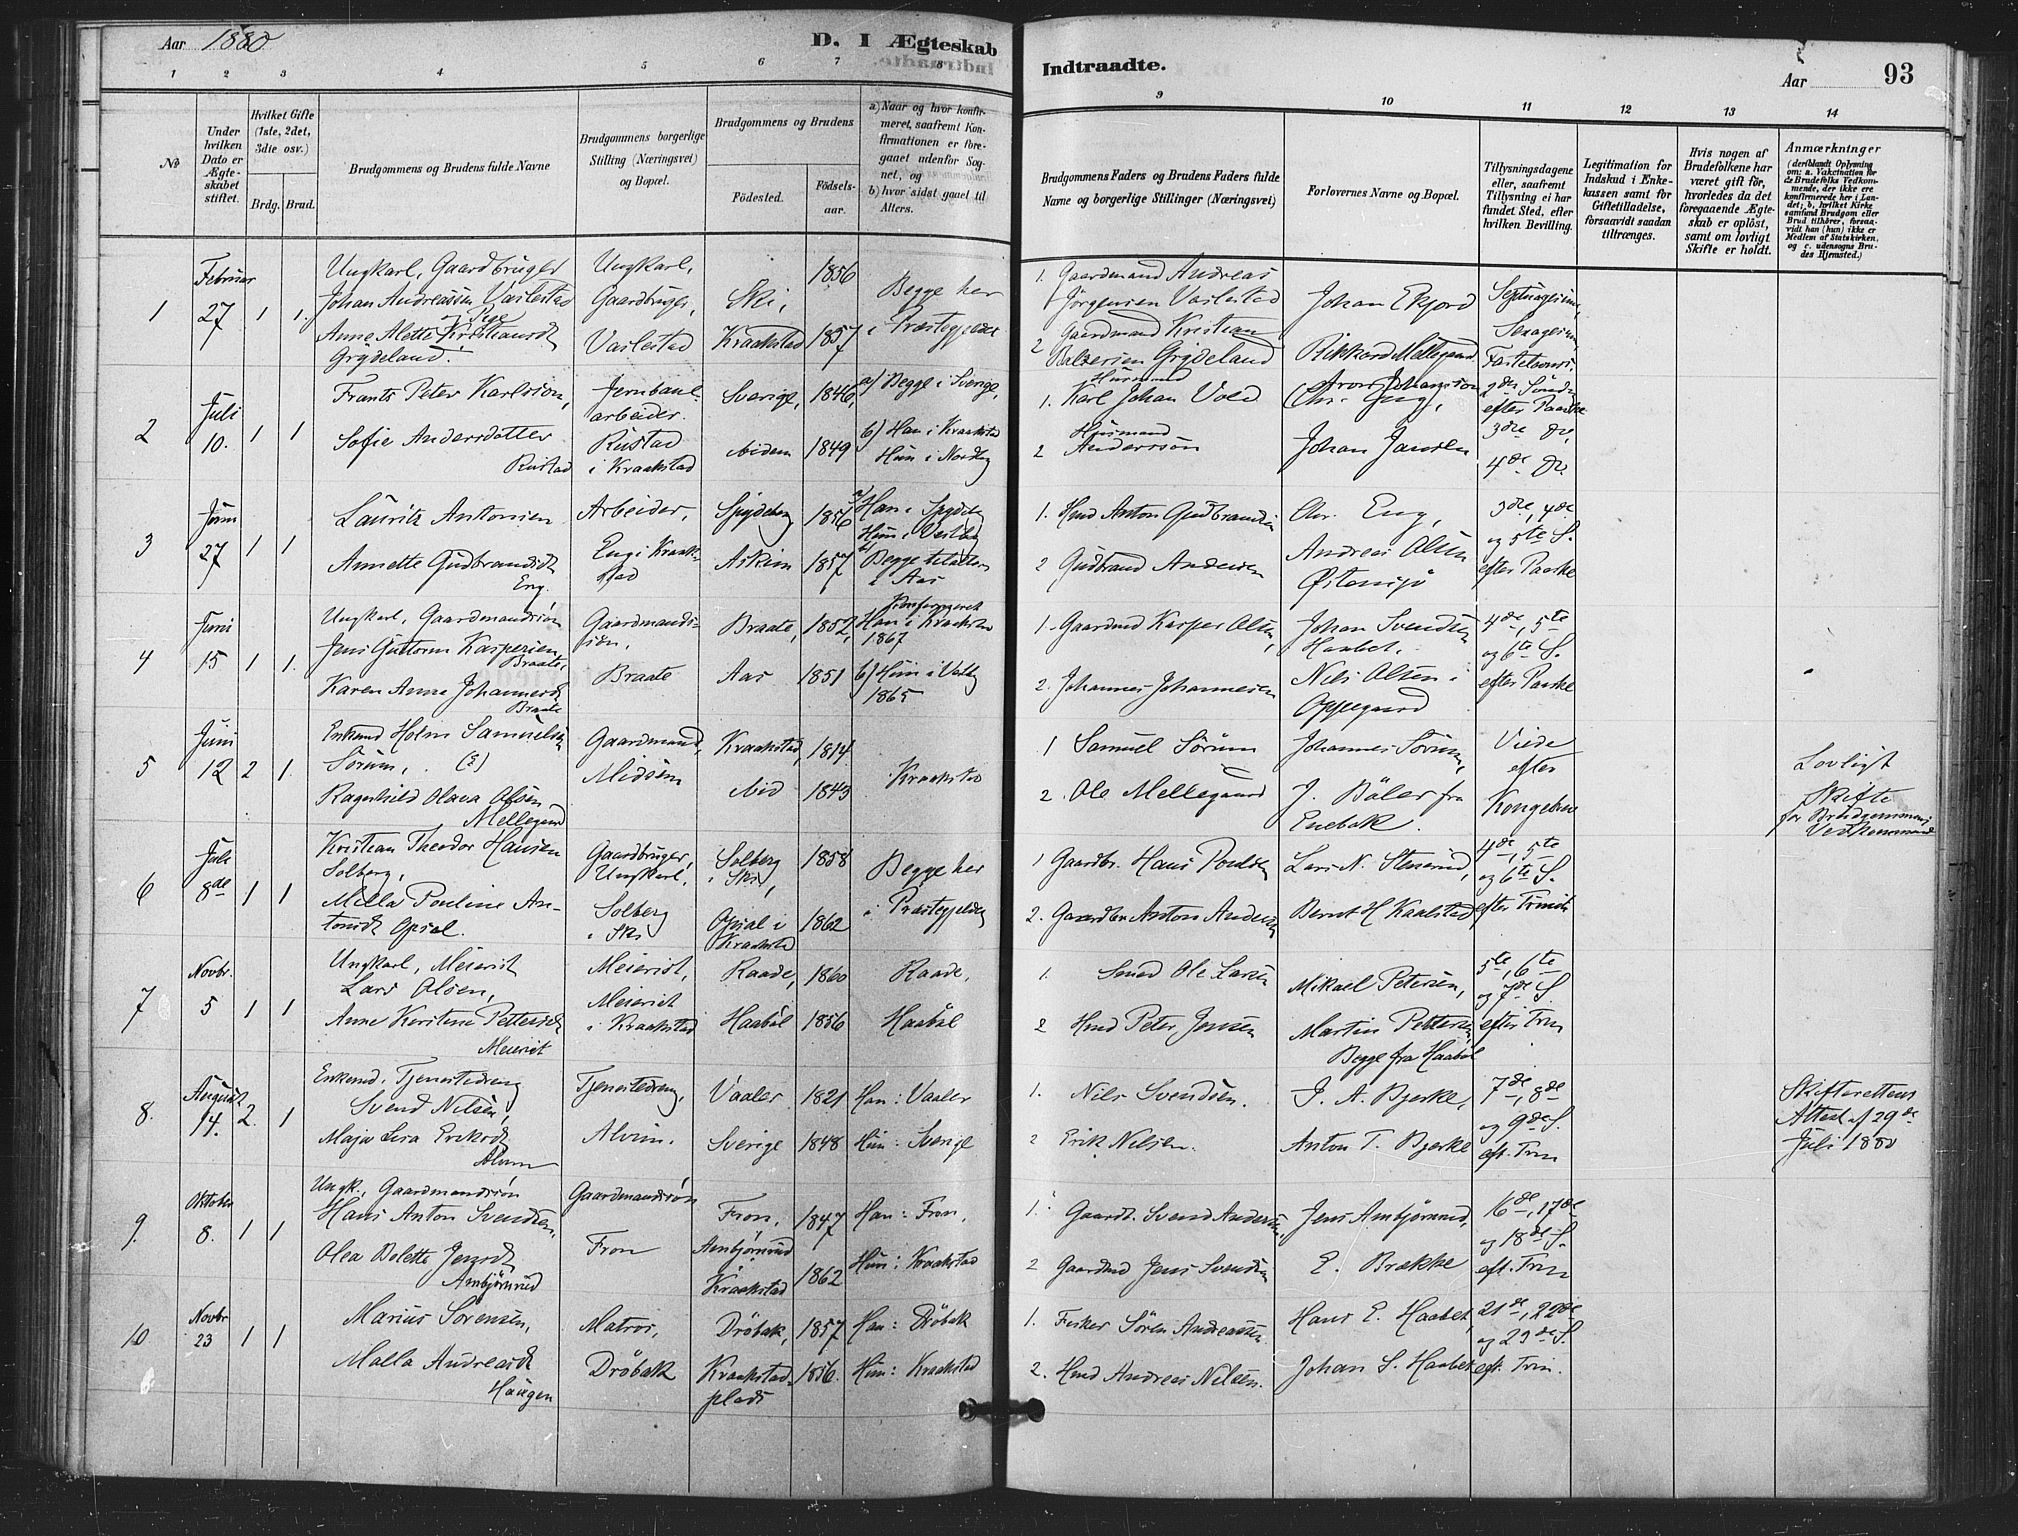 Aar 1880
D. I Ægteskab
Indtraadte.
Aar
93
1 2 3 4 5 6 7 8
9 10 11 12 13 14
No
Under hvilken Dato er Ægteskabet stiftet.
Hvilket Gifte (1ste, 2det, 3die osv.)
Brdg. Brud.
Brudgommens og Brudens fulde Navne
Brudgommens borgerlige Stilling (Næringsvei) og Bopæl.
Brudgommens og Brudens
Födested.
Födsels-aar.
a) Naar og hvor konfirmeret, saafremt Konfirmationen er foregaaet udenfor Sognet, og
b) hvor sidst gaaet til Alters.
Brudgommens Faders og Brudens Faders fulde Navne og borgerlige Stillinger (Næringsvei)
Forlovernes Navne og Bopæl.
Tillysningsdagene eller, saafremt Tillysning ei har fundet Sted, efter hvilken Bevilling.
Legitimation for Indskud i Enkekassen samt for Giftetilladelse, forsaavidt saadan tiltrænges.
Hvis nogen af Brudefolkene har været gift før, hvorledes da det foregaaende Ægteskab er oplöst, samt om lovligt Skifte er holdt.
Anmærkninger
(deriblandt Oplysning om: a. Vaccination for de Brudefolks Vedkommende, der ikke ere konfirmerede her i Landet; b. hvilket Kirkesamfund Brudgom eller Brud tilhörer, forsaavidt han (hun) ikke er Medlem af Statskirken, og c. udensogns Brudes Hjemsted.)
1
Februar
27
1 1.
Ungkarl, Gaardbruger
Johan Andreassen Vaslestad
og Pige
Anne Alette Kristiansdt
Grydeland.
Ungkarl,
Gaardbruger,
Vaslestad
Ski,
Kraakstad
1856
1857
Begge her
i Præstegjeldet
1. Gaardmand Andreas
Jörgensen Vaslestad
2 Gaardmand Kristian
Balzersen Grydeland
Johan Ekjord
Rikkard Mellegaard
Septuagesima,
Sexagesima,
Fastelavns.
2
Juli
10.
1 1
Frants Peter Karlsson,
Sofie Andersdotter
Rustad
Jernbane-
arbeider.
Rustad
i Kraakstad
Sverige,
ibidem
1846,
1849
a) Begge i Sverige,
b) Han i Kraakstad
Hun i Nordby
1. Husmand
Karl Johan Vold
2 Husmand
Anderssön
Aron Johansson
Chr. Eng,
Johan Jansen
2den Sönd.
efter Paaske
3die do,
4de do.
3
Juni
27
1 1
Lauritz Antonsen
Annette Gudbrandsdt
Eng.
Arbeider,
Eng i Kraak-
stad
Spydeberg
Askim
1856
1857
a) Han i Spydeberg
Hun i Vestby
b) Begge tilalters
i Aas
1. Hmd Anton Gudbrandsen
2 Gudbrand Andersen
Chr. Eng,
Andreas Olsen
Østensjö
3die, 4de
og 5te S.
efter Paaske
4
Juni
15
1 1.
Ungkarl, Gaardmandssön
Jens Guttorm Kaspersen
Braate,
Karen Anne Johannesdt
Braate
Gaardmands-
sön,
Braate
Braate,
Aas
1852,
1851
Konfirmeret
Han i Kraakstad
1867
b) Hun i Vestby
1865
1. Gaardmd Kasper Olsen,
2. Johannes Johannesen
Johan Svendsen
Haabet.
Nils Olsen i
Oppegaard
4de, 5te
og 6te S.
efter Paaske
5
Juni
12
2 1.
Enkemd Holm Samuelsen
Sörum, . (E)
Ragnhild Olava Olsen
Mellegaard
Gaardmand,
Midsem
Kraakstad,
ibid
1814
1843
Kraakstad
1 Samuel Sörum
2. Ole Mellegaard
Johannes Sörum,
J. Böler fra
Enebak.
Viede
efter
Kongebrev
Lovligt
Skifte
for Brudgommens
Vedkommende
6
Juli
8de
1 1
Kristian Theodor Hansen
Solberg,
Milla Pouline An-
tonsdt Opsal.
Gaardbruger,
Ungkarl,
Solberg
i Ski
Solberg
i Ski,
Opsal i
Kraakstad
1858
1862
Begge her
i Præstegjeldet
1 Gaardbr. Hans Poulsen
2. Gaardbr Anton Andersen
Lars N. Stenerud,
Bernt H Kaalstad
4de, 5te
og 6te S.
efter Trinit
7
Novbr.
5
1 1
Ungkarl, Meierist
Lars Olsen,
Anne Kirstine Pettersdt
Meierist
Meierist,
Meieriet
i Kraakstad
Raade,
Haaböl
1860
1856
Raade,
Haaböl
1. Smed Ole Larsen
2 Hmd Peter Jensen
Mikael Petersen,
Martin Pettersen
Begge fra Haaböl
5te, 6te
og 7de S.
efter Trin
8.
August
14.
2. 1
Enkemd. Tjenestedreng
Svend Nilsen,
Maja Lisa Eriksdt
Alvim
Tjenestedreng,
Alvim.
Vaaler
Sverige
1821
1848
Han: Vaaler
Hun: Sverige
1. Nils Svendsen.
2 Erik Nilsen.
J. A. Bjerke,
Anton T. Bjerke
7de, 8de
og 9de S.
eft. Trin
Skifterettens
Attest af 29de
Juli 1880
9.
Oktober
8.
1 1
Ungk., Gaardmandssön
Hans Anton Svendsen,
Olea Bolette Jensdt
Ambjörnrud
Gaardmandssön
Fron
Fron,
Ambjörnrud
i
Kraakstad
1847
1862
Han: Fron,
Hun: Kraakstad
1. Gaardb. Svend Andersen,
2 Gaardmd Jens Svendsen
Jens Ambjörnrud,
E. Brække
16de, 17de
og 18de S.
eft. Trin
10
Novbr
23
1 1
Marius Sörensen,
Malla Andreasdt
Haugen
Matros,
Dröbak
Dröbak,
Kraakstad-
plads
1857
1856.
Han: Dröbak
Hun: Kraakstad
1. Fisker Sören Andreassen
2. Hmd Andreas Nilsen.
Hans E. Haabet,
Johan S. Haabet
21de, 22de
og 23de S.
eft. Trin.